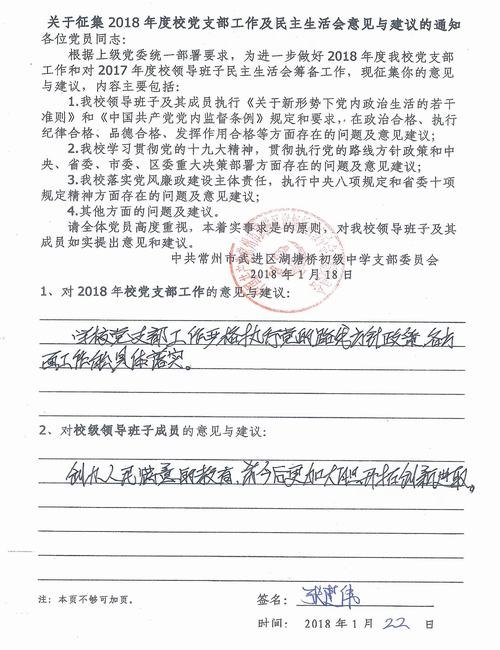 关于征集 2018 年度校党支部工作及民主生活会意见与建议的通知
各位党员同志：
根据上级党委统一部署要求，为进一步做好 2018 年度我校党支部
工作和对 2017 年度校领导班子民主生活会筹备工作，现征集你的意见
与建议，内容主要包括：
1.我校领导班子及其成员执行《关于新形势下党内政治生活的若干
准则》和《中国共产党党内监督条例》规定和要求，在政治合格、执行
纪律合格、品德合格、发挥作用合格等方面存在的问题及意见建议；
2.我校学习贯彻党的十九大精神，贯彻执行党的路线方针政策和中
央、省委、市委、区委重大决策部署方面存在的问题及意见建议；
3.我校落实党风廉政建设主体责任，执行中央八项规定和省委十项
规定精神方面存在的问题及意见建议；
4.其他方面的问题及建议。
请全体党员高度重视，本着实事求是的原则，对我校领导班子及其
成员如实提出意见和建议。
中共常州市武进区湖塘桥初级中学支部委员会
2018 年 1 月 18 日
1、对 2018 年校党支部工作的意见与建议：
学校党支部工作严格执行党的路线方针政策，各方
面工作能具体落实。
2、对校级领导班子成员的意见与建议：
创办人民满意的教育，若今后更加大胆，开拓创新进取。
注：本页不够可加页。
签名：
时间： 2018 年 1 月 22 日